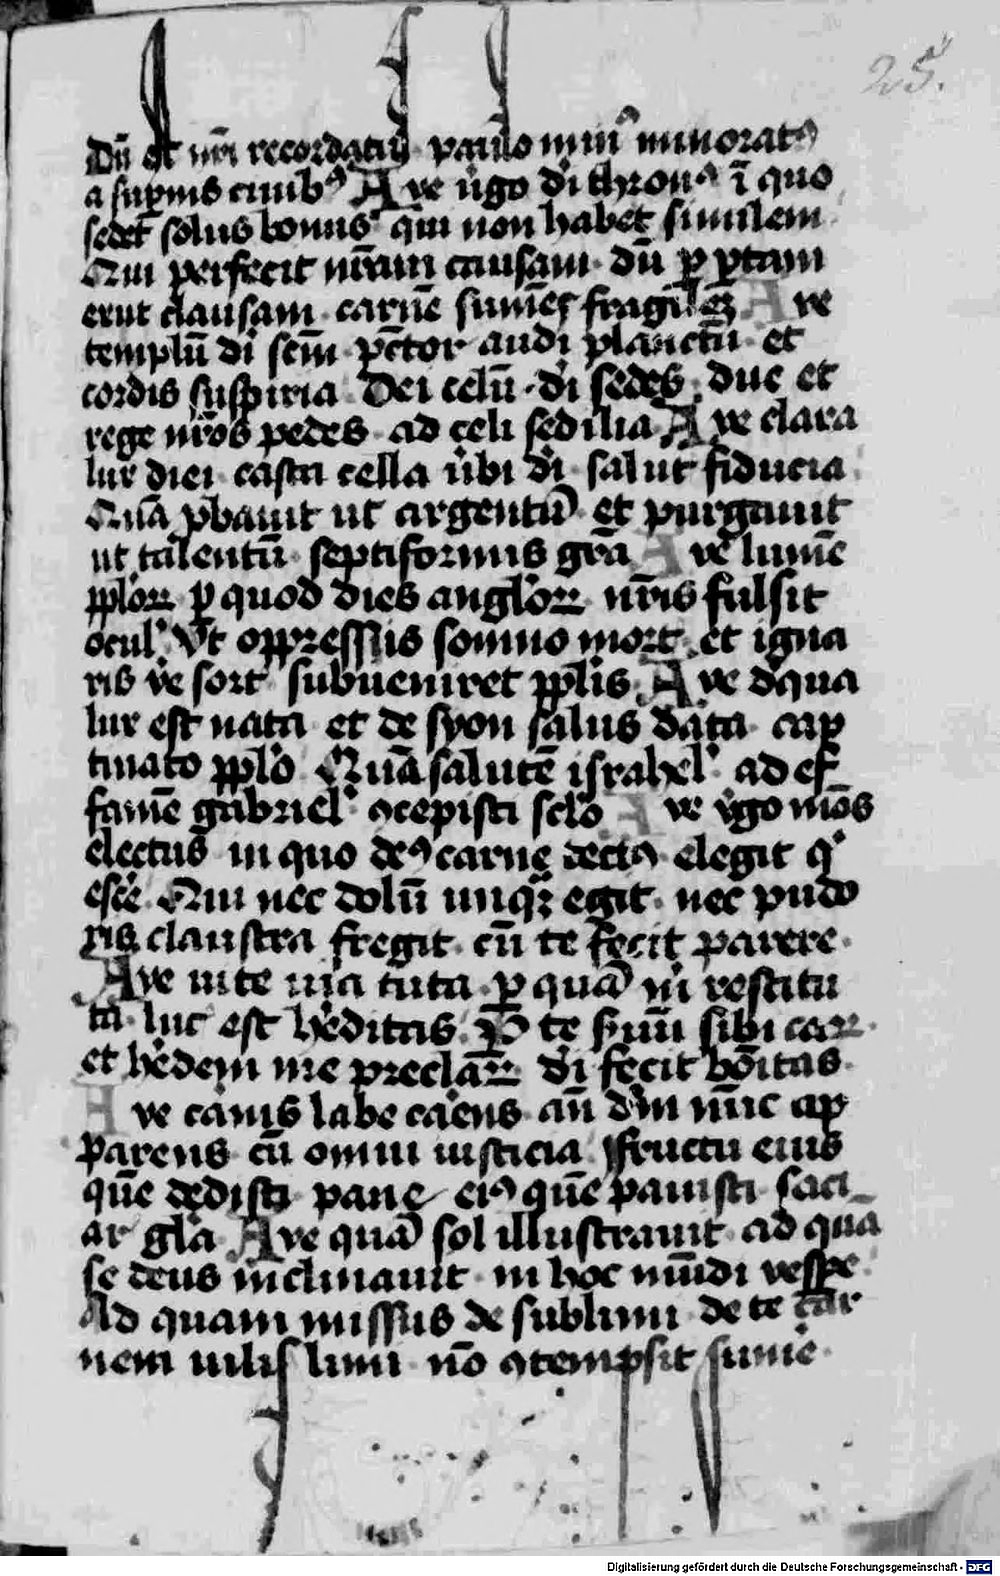 25.
Dū est nr̄i recordatꝰ paulo minꝰ minoratꝰ
a supnis ciuibꝰ Aue ugo di thronꝰ ī quo
sedet solus bonus qui non habet similem
Qui perfecit nr̄am causam dū p ptam
erut clausam carnē sumēs fragilez Aue
templū di scm̄ pctor audi planctū et
cordis suspiria Dei celū di sedes duc et
rege nr̄os pedes ad celi sedilia Aue clara
lux diei casta cella ubi di salut fiducia
Quā pbauit ut argentū et purgauit
ut talentū septiformis grā Aue lumē
pploꝝ p quod dies angloꝝ nr̄is fulsit
ocul Ut oppressus somno mort et igna
ris ve sort subueniret pplis Aue dqua
lux est nata et de syon salus data cap
tiuato pplo Quā salutē israhel ad ef
famē gabriel ꝯcepisti sclo Aue ugo mōs
electus in quo deꝰ carne tectꝰ elegit q
escē Qui nec dolū unqꝫ egit nec pudo
ris claustra fregit cū te fecit parere
Aue uite uia tuta p quā nī restitu
ta luc est hēditas P te suū sibi caꝝ
et hēdem me preclaꝝ di fecit bōitas
Aue carnis labe carēs an̄ dm̄ nūc ap
parens cū omni iusticia fructu eius
quē dedisti pane eiꝰ quē pauisti saci
ar gla Aue quā sol illustrauit ad quā
se deus inclinauit in hoc mūdi vespe
Ad quam missus de sublimi de te car
nem uilis limi nō ꝯtempsit sumē
Digitalisierung gefördert durch die Deutsche Forschungsgemeinschaft - DFG